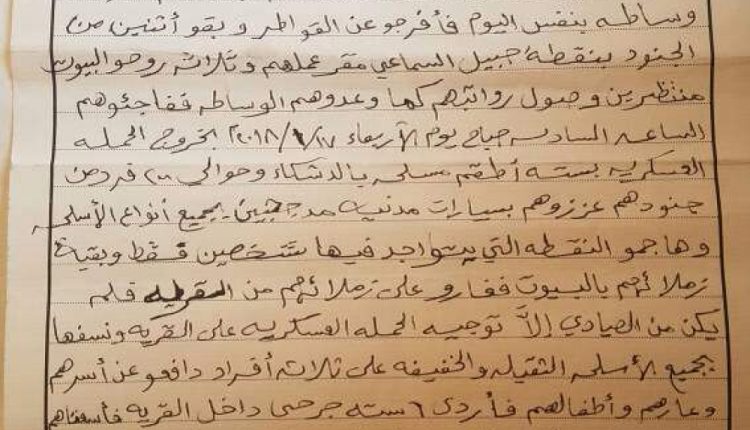 وساطه بنفس اليوم فأفرجو عن القواطر وبقو أثنين من
الجنود بنقطة جبيل السماعي مقر عملهم وثلاثه روحو البيوت
منتظرين وصول رواتبهم كما وعدوهم الوساطه ففاجئوهم
الساعه السادسه صباح يوم الآربعاء ٢٠١٨/١/١٧ بخروج الحمله
العسكريه بسته أطقم مسلحه بالدشكاء وحوالي ٢٠٠ فرد من
جنودهم عززوهم بسيارات مدنيه مدججين بجميع أنواع الأسلحه
وهاجمو النقطه التي يتواجد فيها شخصين فقط وبقية
زملائهم بالبيوت فغارو على زملائهم من القريه فلم
يكن من الصيادي إلاَّ توجيه الحمله العسكريه على القريه ونسفها
بجميع الأسلحه الثقيله والخفيفه على ثلاثه أفراد دافعو عن أسرهم
وعارهم وأطفالهم فأردى ٦ سته جرحى داخل القريه فأسعفناهم